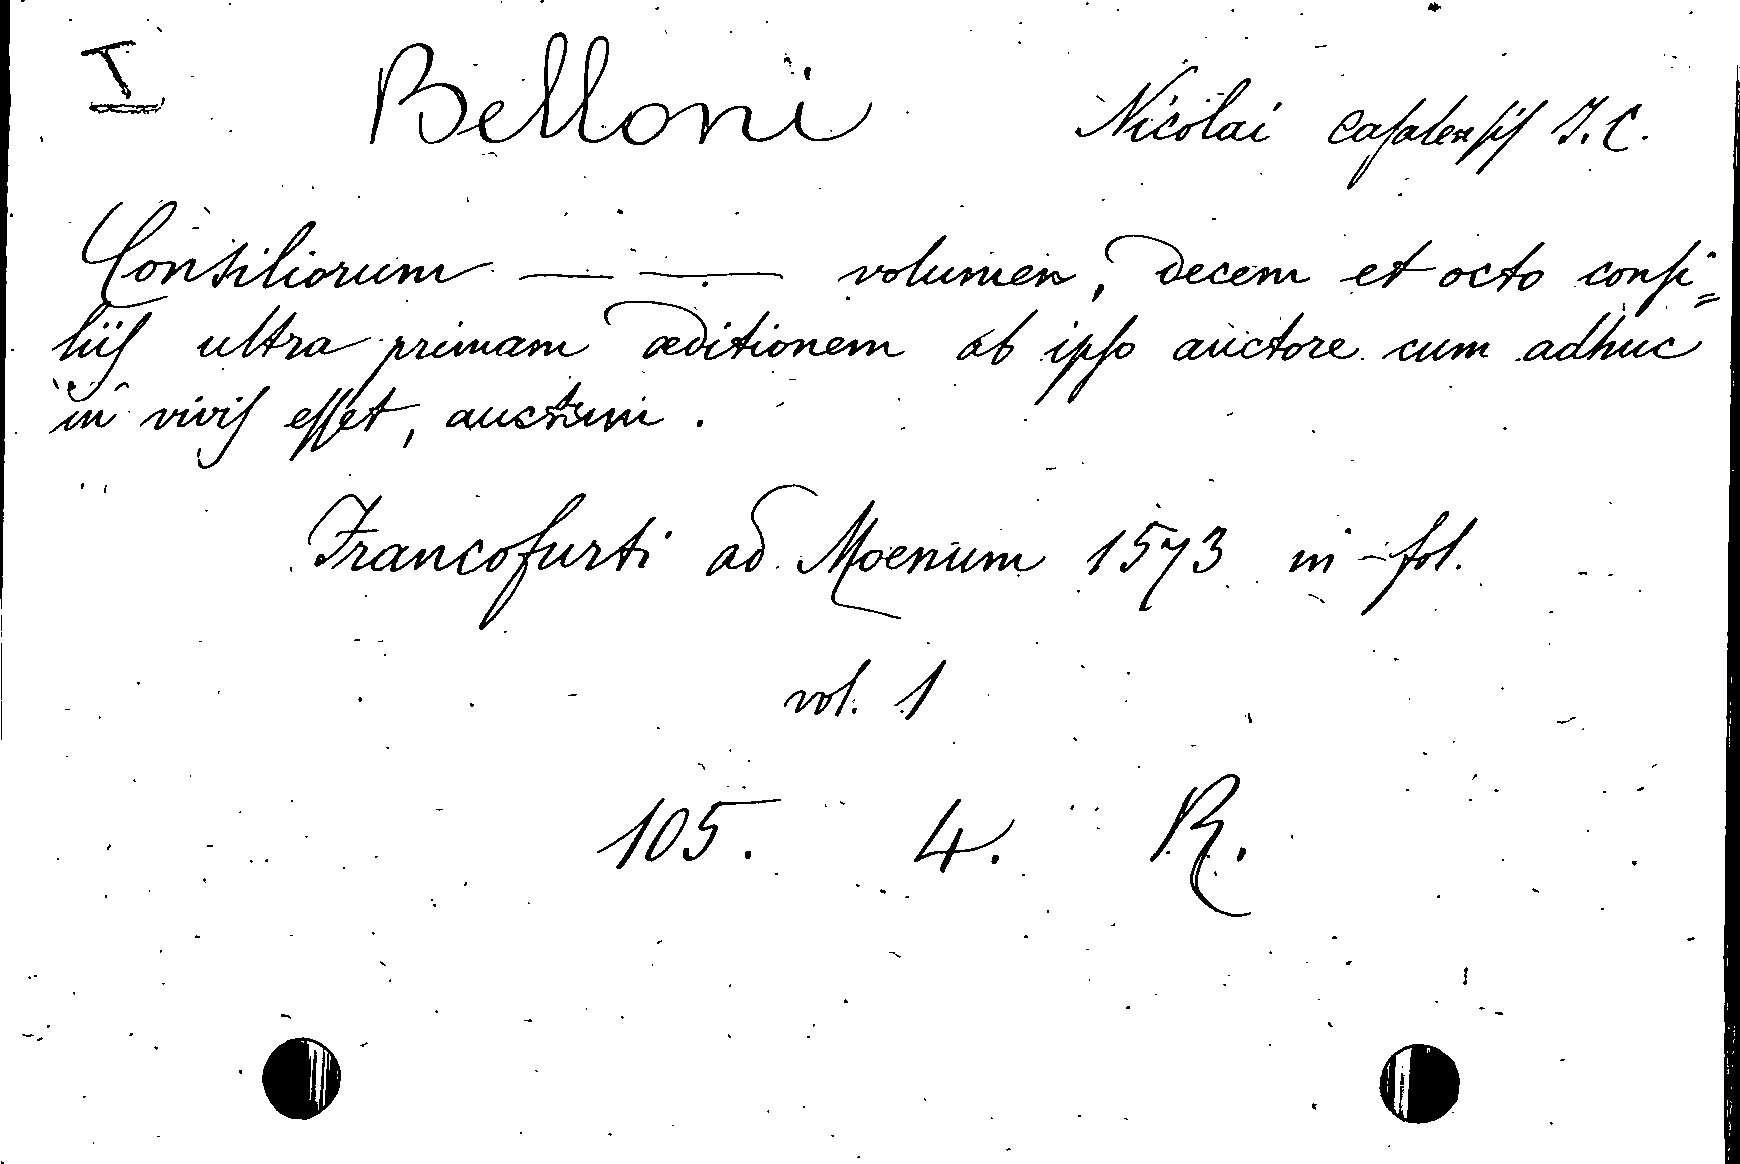 I Belloni Nicolai caſalenſiſ J. C.
Consiliorum — — volumen, decem et octo conſi=
liiſ ultra primam æditionem ab ipſo auctore cum adhuc
in viviſ eſſet, auctum.
Francofurti ad Moenum 1573 in-fol.
vol. 1
105. 4. R.